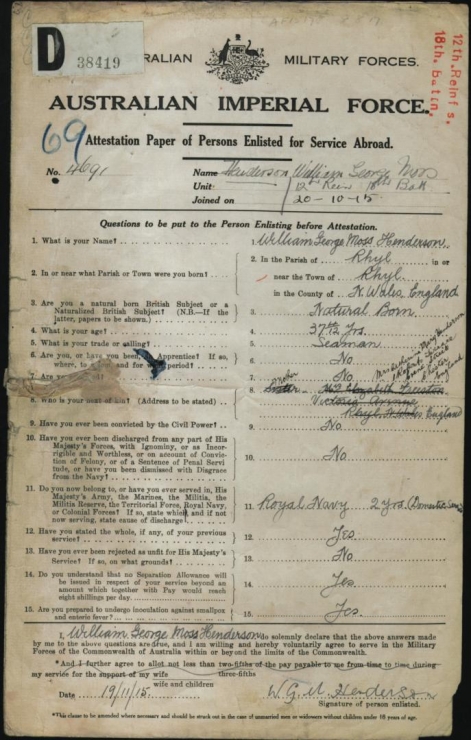 D 38419
AUSTRALIAN MILITARY FORCES.
12th. Reinfs.
18th. Batn.
AUSTRALIAN IMPERIAL FORCE.
69
Attestation Paper of Persons Enlisted for Service Abroad.
No. 4691
Name Henderson William George Moss
Unit 12th Rein 18th Batt
Joined on 20-10-15
Questions to be put to the Person Enlisting before Attestation.
1. What is your Name? 1. William George Moss Henderson
2. In or near what Parish or Town were you born? 2. In the Parish of Rhyl in or
near the Town of Rhyl
in the County of N. Wales, England
3. Are you a natural born British Subject or a
Naturalized British Subject? (N.B.—If the
latter, papers to be shown.) 3. Natural Born
4. What is your age? 4. 37 Yrs.
5. What is your trade or calling? 5. Seaman
6. Are you, or have you been, Apprentice? If so,
where, to and for period? 6. No
7. Are you 7. No
8. Who is your next of kin? (Address to be stated) 8. Mother Sister Elizabeth
Victoria Avenue
Rhyl, N. Wales England
9. Have you ever been convicted by the Civil Power? 9. No
10. Have you ever been discharged from any part of His
Majesty's Forces, with Ignominy, or as Incor-
rigible and Worthless, or on account of Convic-
tion of Felony, or of a Sentence of Penal Servi-
tude, or have you been dismissed with Disgrace
from the Navy? 10. No
11. Do you now belong to, or have you ever served in, His
Majesty's Army, the Marines, the Militia, the
Militia Reserve, the Territorial Force, Royal Navy,
or Colonial Forces? If so, state which, and if not
now serving, state cause of discharge 11. Royal Navy 2 yrs (Domestic
12. Have you stated the whole, if any, of your previous
service? 12. Yes
13. Have you ever been rejected as unfit for His Majesty's
Service? If so, on what grounds? 13. No
14. Do you understand that no Separation Allowance will
be issued in respect of your service beyond an
amount which together with Pay would reach
eight shillings per day. 14. Yes
15. Are you prepared to undergo inoculation against smallpox
and enteric fever? 15. Yes.
I, William George Moss Henderson do solemnly declare that the above answers made
by me to the above questions are true, and I am willing and hereby voluntarily agree to serve in the Military
Forces of the Commonwealth of Australia within or beyond the limits of the Commonwealth.
*And I further agree to allot not less than two-fifths of the pay payable to me from time to time during
three-fifths
my service for the support of my wife
wife and children
Date 19/11/15 W. G. M. Henderson
Signature of person enlisted.
*This clause to be amended where necessary and should be struck out in the case of unmarried men or widowers without children under 18 years of age.